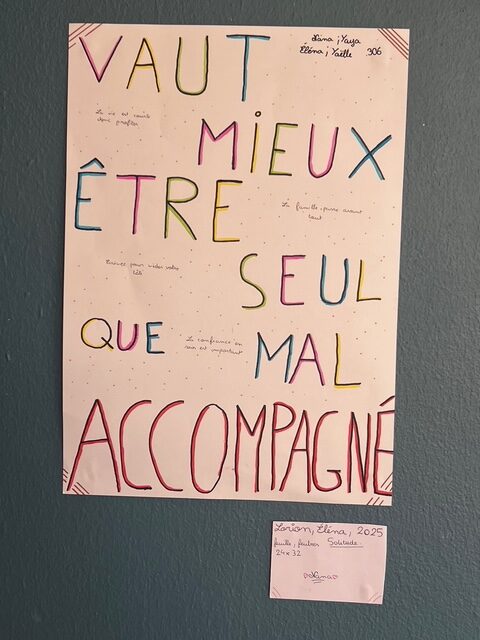 VAUT
Liana ; Yaya
Éléna ; Yaëlle 306
La vie est courte
donc profitez
MiEUX
ÊTRE
La famille passe avant
tout
pour vider votre
SEUL
QUE
La confiance en
soi est important
MAL
ACCOMPAGNÉ
Éléna, 2025
feuille, feutres Solitude
24 x 32